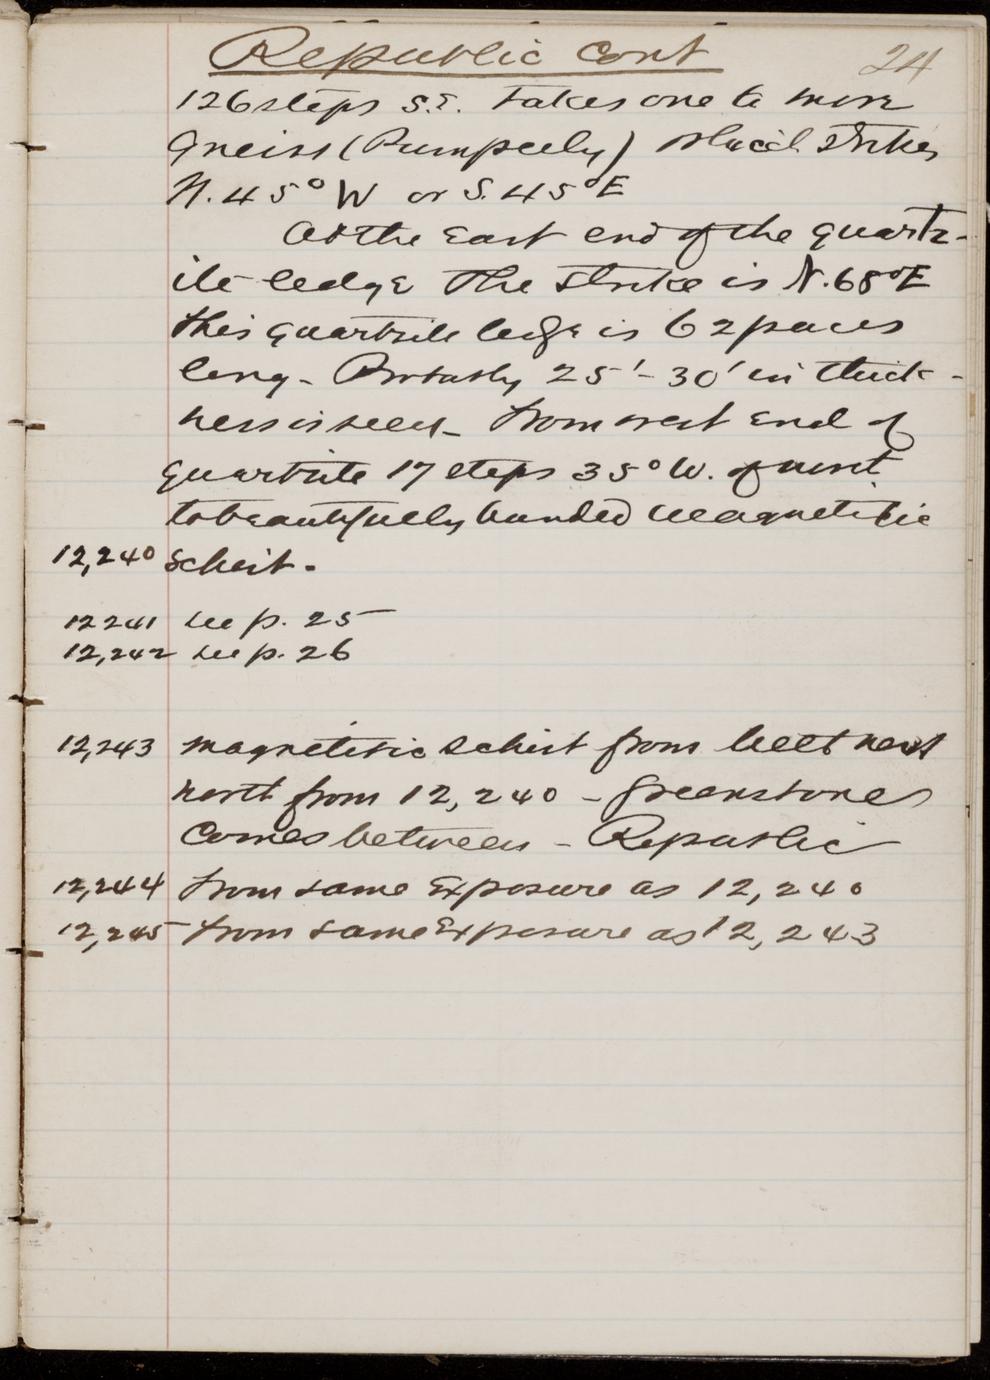 Republic Cont 24
126 steps S.E. takes one to more
Gneiss (Pumpelly) which strikes
N. 45° W or S. 45° E
At the East end of the quartz-
ite ledge the strike is N. 68° E
this quartzite ledge is 62 paces
long - Probably 25'- 30' in thick-
ness is seen - From west end of
quartzite 17 steps 35° W. of north
to beautifully banded magnetitic
12,240 Schist.
12241 see p. 25
12,242 see p. 26
12,243 magnetitic schist from belt next
north from 12,240 - Greenstone
comes between - Republic
12,244 From same Exposure as 12,240
12,245 From same Exposure as 12,243